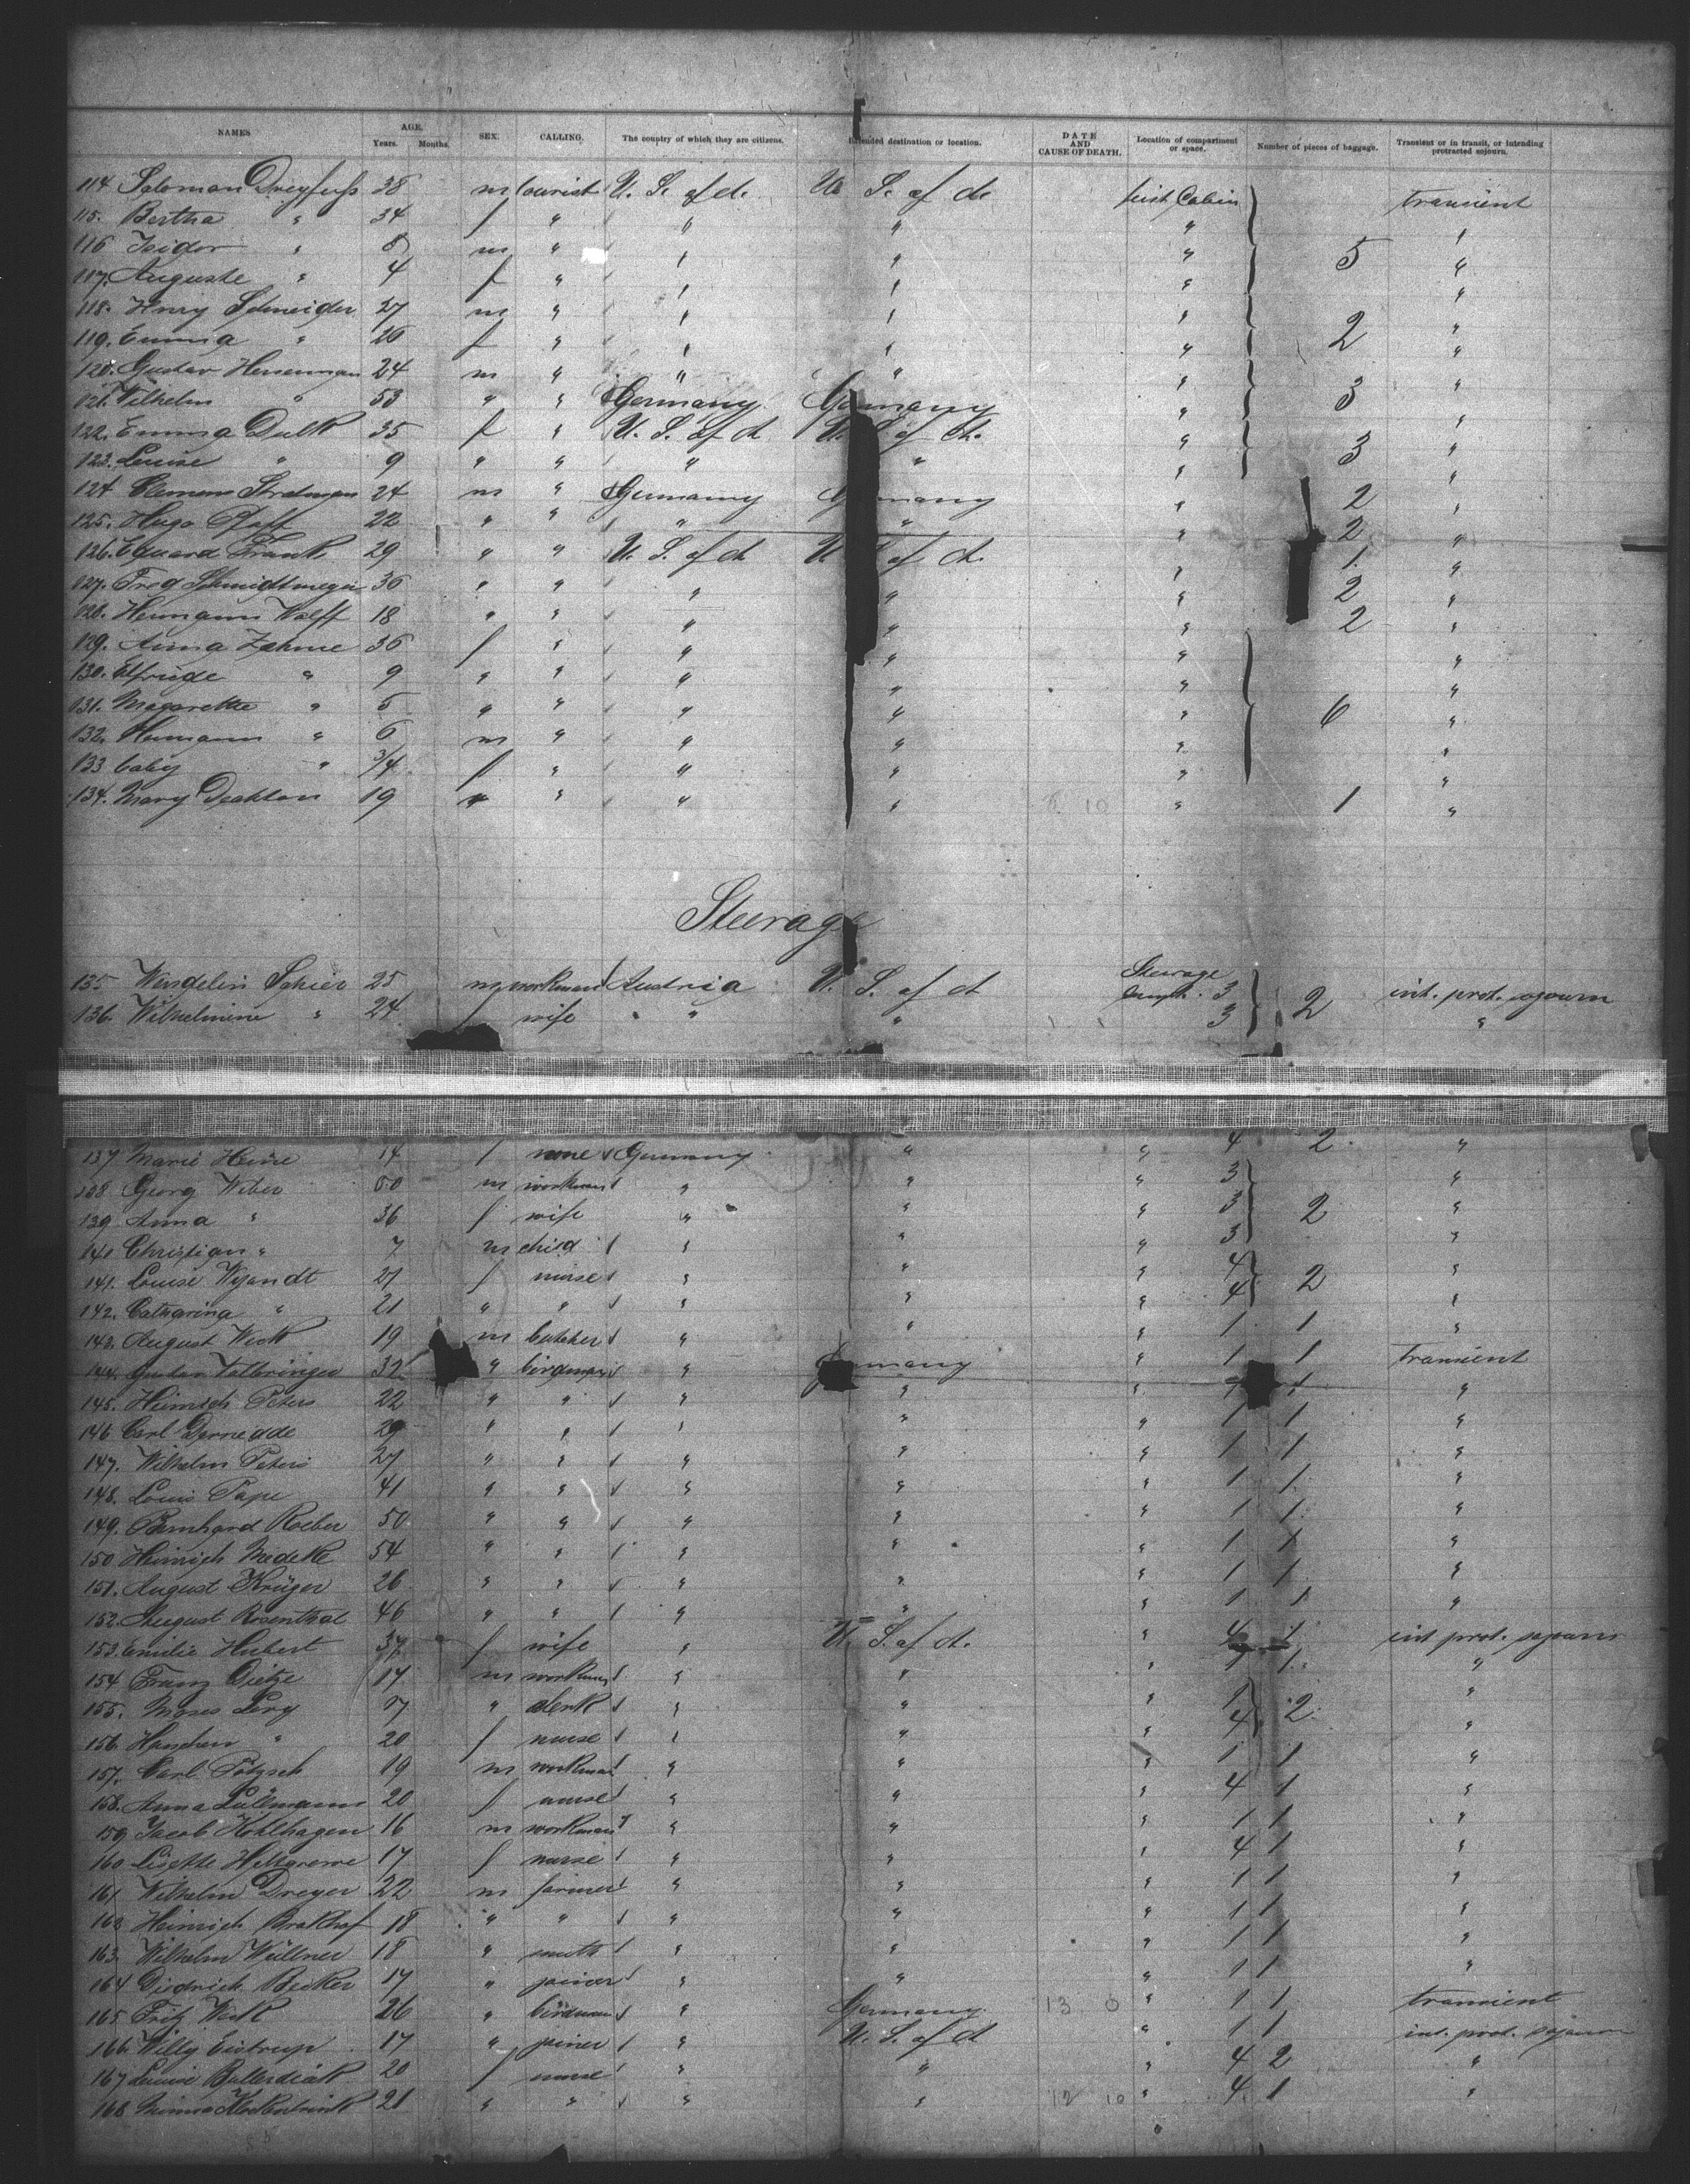 NAMES AGE. Years. Months. SEX. CALLING. The country of which they are citizens. Intended destination or location. DATE AND CAUSE OF DEATH. Location of compartment or space. Number of pieces of baggage. Transient or in transit, or intending protracted sojourn.
114 Saloman Dreyfuss 38 m tourist U. S. of A. U. S. of A. first Cabin transient
115. Bertha " 34 f " " " " "
116 Isidor " m " " " " 5 "
117. Auguste " 4 f " " " " "
118. Henry Schneider 27 m " " " " "
119. Emma " 26 f " " " " 2 "
120. Gustav 24 m " " " " "
121. Wilhelm " 53 " " Germany Germany " 3 "
122. Emma Dulk 35 f " U. S. of A U. S. of A. " "
123. Louise " 9 " " " " " 3 "
124 Clemens 24 m " Germany Germany " 2 "
125. Hugo Pfaff 22 " " " " " 2 "
126. Eduard Frank 29 " " U. S. of A U. S. of A. " 1. "
127. Fred Schmidtmeyer 36 " " " " " 2 "
128. Hermann Wolff 18 " " " " " 2 "
129. Anna Zahme 36 f " " " " "
130. Elfriede " 9 " " " " " "
131. Magarethe " 5 " " " " " 6 "
132. Hermann " 6 m " " " " "
133 baby " 3/4 f " " " " "
134. Mary 19 " " " " " 1 "
Steerage
135 Wendelin Schier 25 m workman Austria U. S. of A Steerage compt. 3 int. prot. sojourn
136. Wilhelmine " 24 f wife " " 3 2 "
137 Marie Heine 14 f none Germany " " 4 2 "
138 Georg Weber 50 m workman " " " 3 "
139 Anna " 36 f wife " " " 3 2 "
140 Christian " 7 m child " " " 3 "
141. Louise Wyandt 27 f nurse " " " 4 2 "
142. Catharina " 21 " " " " " 4 "
143. August Weck 19 m butcher " " " 1 1 "
144. Gustav 32 " " Germany " 1 1 transient
145. Heinrich Peters 22 " " " " " 1 1 "
146 Carl 29 " " " " " 1 1 "
147. Wilhelm Peters 27 " " " " " 1 1 "
148. Louis Pape 41 " " " " " 1 1. "
149. Bernhard Roeber 50 " " " " " 1 1 "
150 Heinrich Medeke 54 " " " " " 1 1 "
151. August Krüger 26 " " " " " 1 1 "
152. August Rosenthal 46 " " " " " 1 1 "
153. Emilie Hubert 37 f wife " U. S. of A. " 4 1 int. prot. sojourn
154 Franz Dietze 17 m workman " " " 1 1. "
155. Moses Levy " clerk " " " 1 2. "
156. " 20 f nurse " " " 4 "
157. Carl 19 m workman " " " 1 1 "
158. Anna Lüllmann 20 f nurse " " " 4 1 "
159. Jacob Kohlhagen 16 m workman " " " 1 1 "
160 Lisette 17 f nurse " " " 4 1 "
161 Wilhelm Dreyer 22 m farmer " " " 1 1 "
162 Heinrich 18 " " " " " 1 1 "
163. Wilhelm Wüllner 18 " smith " " " 1 1 "
164 Diedrich Becker 17 " joiner " " " 1 1 "
165. Fritz Weck 26 " " Germany " 1 1 transient
166. Willy Eistrup 17 " joiner " U. S. of A " 1 1 int. prot. sojourn
167 Louise 20 f nurse " " " 4 2 "
168 Minna 21 " " " " " 4 1 "